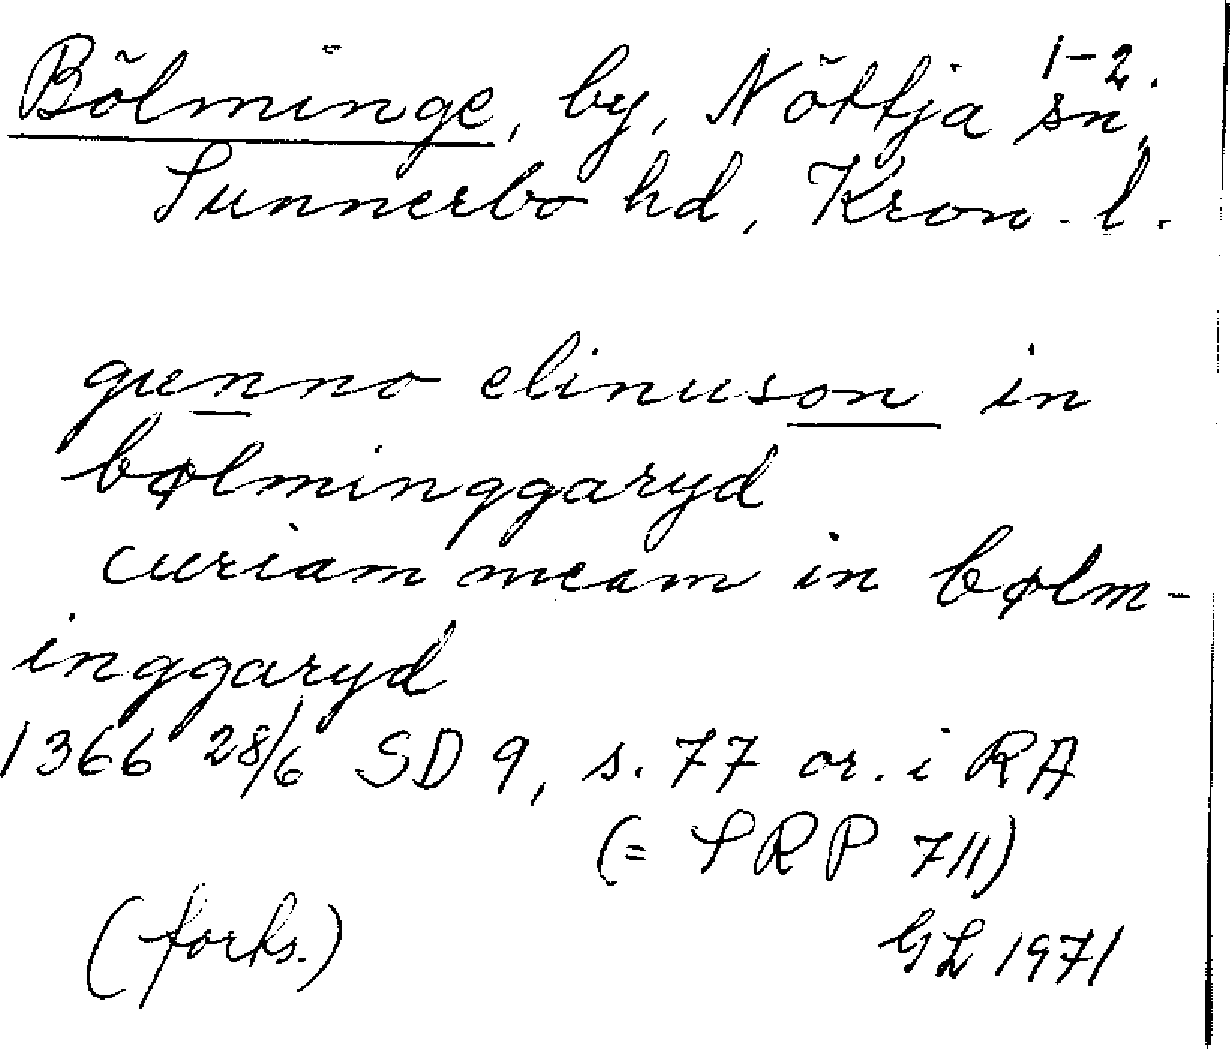 Bölminge, by, Nöttja sn, 1-2.
Sunnerbo hd, Kron. l.
gunno elinuson in
bølminggaryd
curiam meam in bølm-
inggaryd
1366 28/6 SD 9, s. 77 or. i RA
(= SRP 711)
(forts.)
GL 1971